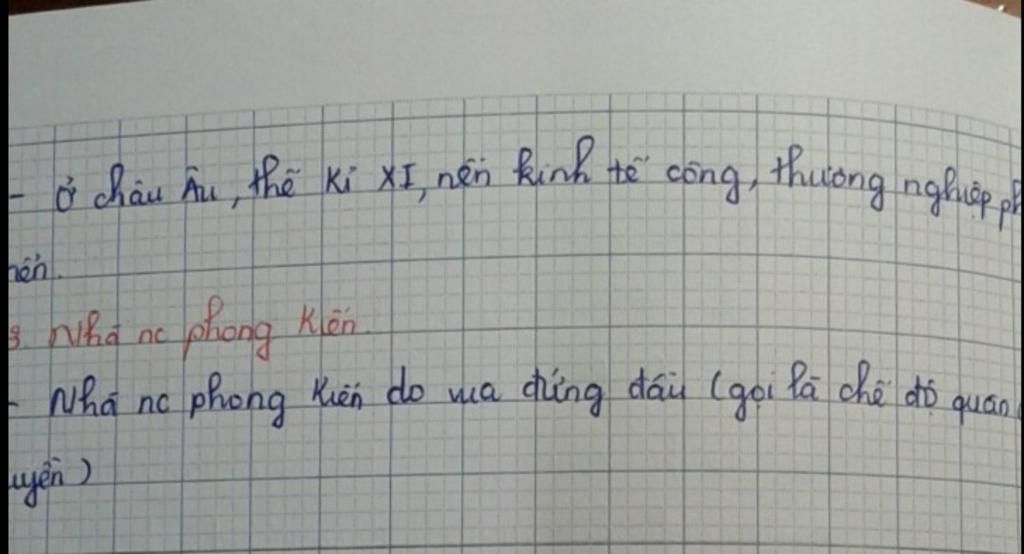 - Ở châu Âu, thế kỉ XI, nền kinh tế công, thương nghiệp ph
3. Nhà nc phong kiến.
- Nhà nc phong kiến do vua đứng đầu (gọi là chế độ quân
uyền)